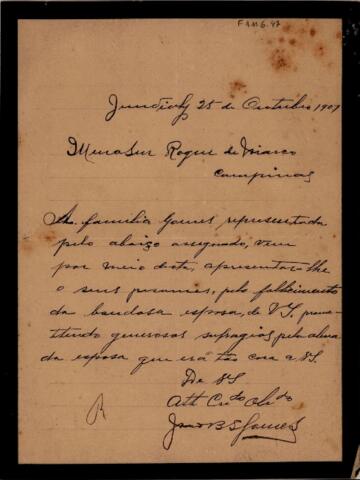 Jundiahy 25 de Outubro 1907
Roque de Marco
Campinas
A familia Gomes representada
pelo abaixo assignado, vem
por meio desta, apresentar-lhe
o seus pesames, pelo fallecimento
da bondosa esposa, de V.S.
generosos sufragios pela alma
da esposa que era tão cara a VS.
De VS
Att Crdo Obdo
Gomes
R